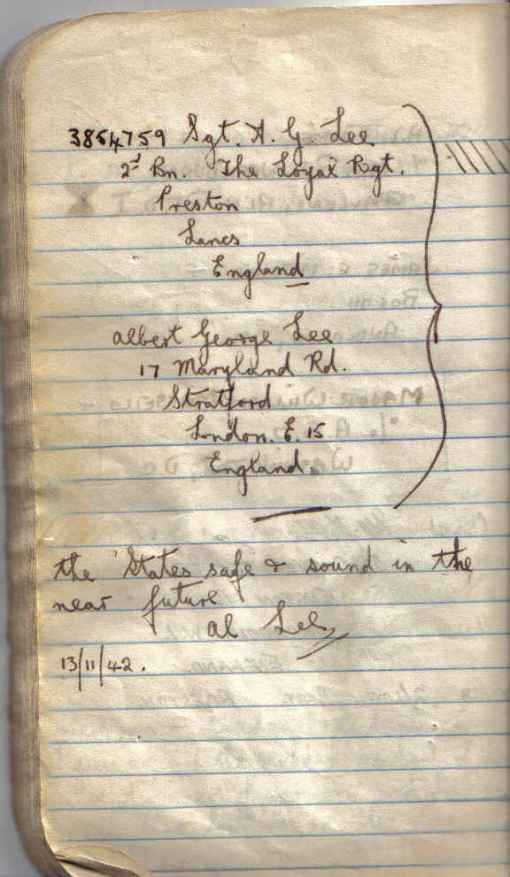 3854759 Sgt. A. G. Lee
2nd Bn. The Loyal Rgt.
Preston
Lancs
England
Albert George Lee
17 Maryland Rd.
Stratford
London. E. 15
England.
the 'States safe & sound in the
near future
Al Lee,
13/11/42.